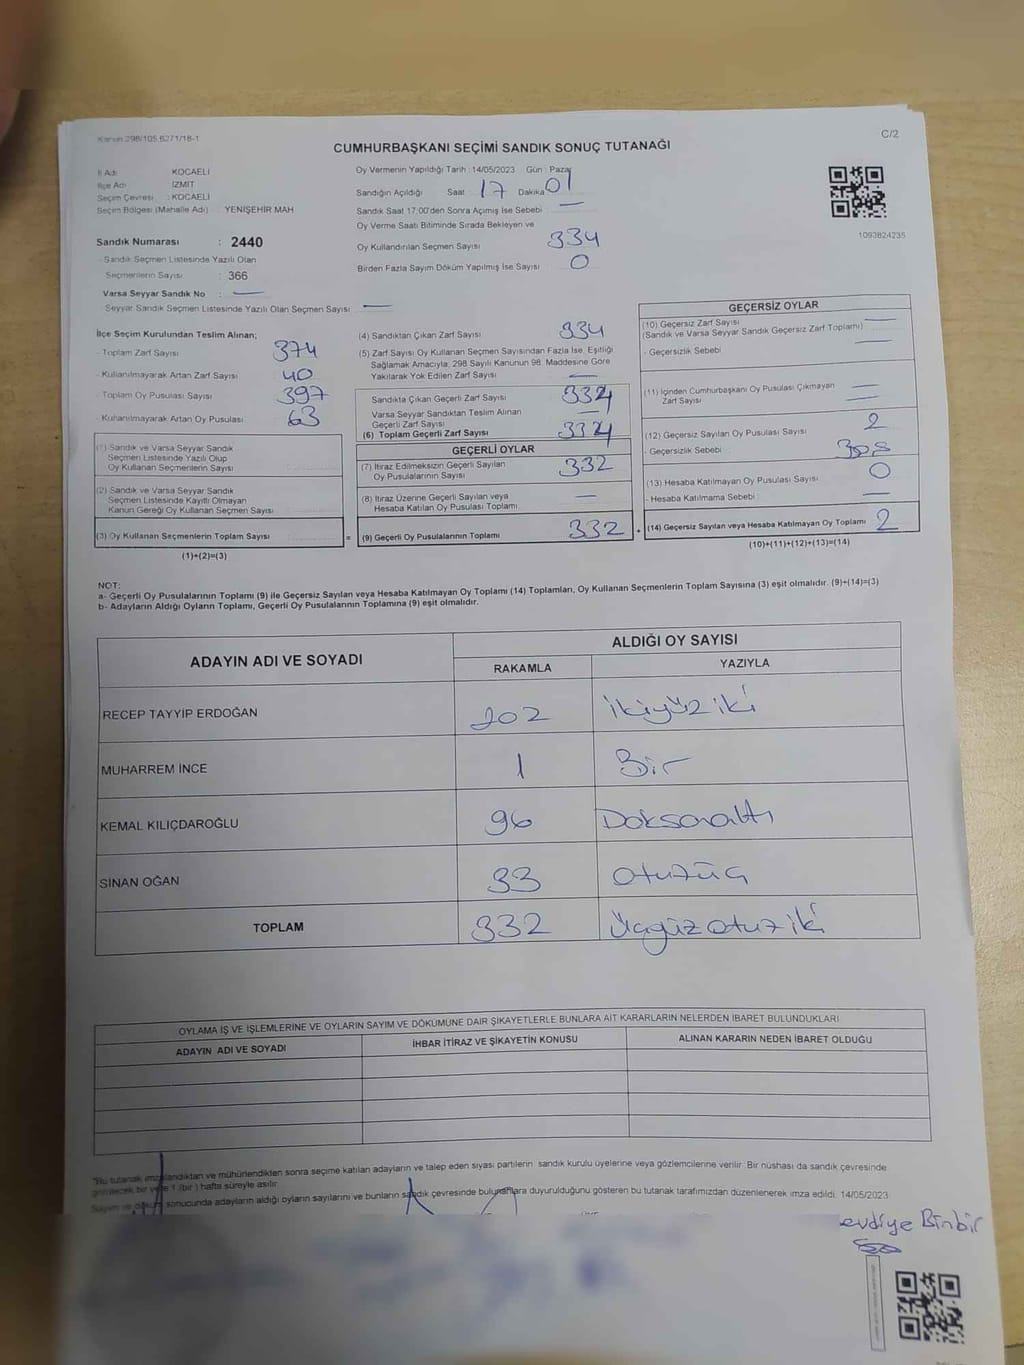 Kanun 298/105.6271/18-1
C/2
CUMHURBAŞKANI SEÇİMİ SANDIK SONUÇ TUTANAĞI
İl Adı : KOCAELİ
İlçe Adı : İZMİT
Seçim Çevresi : KOCAELİ
Seçim Bölgesi (Mahalle Adı) : YENİŞEHİR MAH
Sandık Numarası : 2440
- Sandık Seçmen Listesinde Yazılı Olan
Seçmenlerin Sayısı : 366
Varsa Seyyar Sandık No : —
Seyyar Sandık Seçmen Listesinde Yazılı Olan Seçmen Sayısı : —
Oy Vermenin Yapıldığı Tarih : 14/05/2023 Gün : Pazar
Sandığın Açıldığı Saat : 17 Dakika : 01
Sandık Saat 17:00'den Sonra Açımış İse Sebebi : —
Oy Verme Saati Bitiminde Sırada Bekleyen ve
Oy Kullandırılan Seçmen Sayısı 334
Birden Fazla Sayım Döküm Yapılmış İse Sayısı : 0
1093824235
İlçe Seçim Kurulundan Teslim Alınan;
- Toplam Zarf Sayısı 374
- Kullanılmayarak Artan Zarf Sayısı 40
- Toplam Oy Pusulası Sayısı 397
- Kullanılmayarak Artan Oy Pusulası 63
(1) Sandık ve Varsa Seyyar Sandık
Seçmen Listesinde Yazılı Olup
Oy Kullanan Seçmenlerin Sayısı
(2) Sandık ve Varsa Seyyar Sandık
Seçmen Listesinde Kayıtlı Olmayan
Kanun Gereği Oy Kullanan Seçmen Sayısı
(3) Oy Kullanan Seçmenlerin Toplam Sayısı
(1)+(2)=(3)
(4) Sandıktan Çıkan Zarf Sayısı 334
(5) Zarf Sayısı Oy Kullanan Seçmen Sayısından Fazla İse, Eşitliği
Sağlamak Amacıyla, 298 Sayılı Kanunun 98. Maddesine Göre
Yakılarak Yok Edilen Zarf Sayısı —
Sandıkta Çıkan Geçerli Zarf Sayısı 334
Varsa Seyyar Sandıktan Teslim Alınan
Geçerli Zarf Sayısı —
(6) Toplam Geçerli Zarf Sayısı 334
GEÇERLİ OYLAR
(7) İtiraz Edilmeksizin Geçerli Sayılan
Oy Pusulalarının Sayısı 332
(8) İtiraz Üzerine Geçerli Sayılan veya
Hesaba Katılan Oy Pusulası Toplamı —
= (9) Geçerli Oy Pusulalarının Toplamı 332 +
GEÇERSİZ OYLAR
(10) Geçersiz Zarf Sayısı —
(Sandık ve Varsa Seyyar Sandık Geçersiz Zarf Toplamı)
- Geçersizlik Sebebi —
(11) İçinden Cumhurbaşkanı Oy Pusulası Çıkmayan —
Zarf Sayısı —
(12) Geçersiz Sayılan Oy Pusulası Sayısı 2
- Geçersizlik Sebebi :
(13) Hesaba Katılmayan Oy Pusulası Sayısı 0
- Hesaba Katılmama Sebebi : —
(14) Geçersiz Sayılan veya Hesaba Katılmayan Oy Toplamı 2
(10)+(11)+(12)+(13)=(14)
NOT:
a- Geçerli Oy Pusulalarının Toplamı (9) ile Geçersiz Sayılan veya Hesaba Katılmayan Oy Toplamı (14) Toplamları, Oy Kullanan Seçmenlerin Toplam Sayısına (3) eşit olmalıdır. (9)+(14)=(3)
b- Adayların Aldığı Oyların Toplamı, Geçerli Oy Pusulalarının Toplamına (9) eşit olmalıdır.
ADAYIN ADI VE SOYADI
ALDIĞI OY SAYISI
RAKAMLA YAZIYLA
RECEP TAYYİP ERDOĞAN 202 ikiyüziki
MUHARREM İNCE 1 Bir
KEMAL KILIÇDAROĞLU 96 Doksanaltı
SİNAN OĞAN 33 otuzüç
TOPLAM 332 üçyüzotuziki
OYLAMA İŞ VE İŞLEMLERİNE VE OYLARIN SAYIM VE DÖKÜMÜNE DAİR ŞİKAYETLERLE BUNLARA AİT KARARLARIN NELERDEN İBARET BULUNDUKLARI
ADAYIN ADI VE SOYADI İHBAR İTİRAZ VE ŞİKAYETİN KONUSU ALINAN KARARIN NEDEN İBARET OLDUĞU
"Bu tutanak imzalandıktan ve mühürlendikten sonra seçime katılan adayların ve talep eden siyasi partilerin sandık kurulu üyelerine veya gözlemcilerine verilir. Bir nüshası da sandık çevresinde
görülecek bir yere 1 (bir) hafta süreyle asılır.
Sayım ve döküm sonucunda adayların aldığı oyların sayılarını ve bunların sandık çevresinde bulunanlara duyurulduğunu gösteren bu tutanak tarafımızdan düzenlenerek imza edildi. 14/05/2023
evdiye Binbir